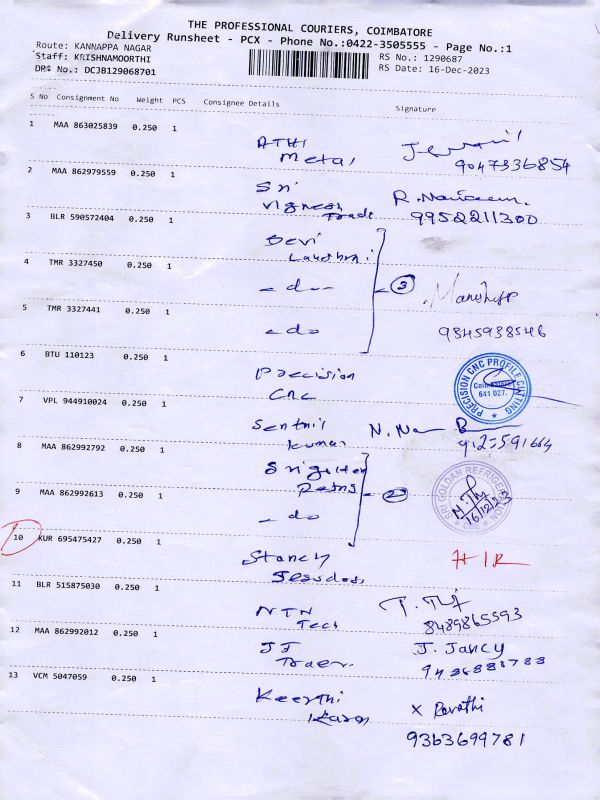 THE PROFESSIONAL COURIERS, COIMBATORE
Delivery Runsheet - PCX - Phone No.:0422-3505555 - Page No.:1
Route: KANNAPPA NAGAR
Staff: KRISHNAMOORTHI
DRS No.: DCJB129068701
RS No.: 1290687
RS Date: 16-Dec-2023
S No Consignment No Weight PCS Consignee Details Signature
1 MAA 863025839 0.250 1
ATHI
Metal
9047336854
2 MAA 862979559 0.250 1
Sri
Vignesh
Trade
9952211300
3 BLR 590572404 0.250 1
Devi
4 TMR 3327450 0.250 1
- do -
3
5 TMR 3327441 0.250 1
- do
9345938546
6 BTU 110123 0.250 1
Precision
CNC
PRECISION CNC PROFILE CUTTING
Coimbatore
641 027.
7 VPL 944910024 0.250 1
Senthil
Kumar
8 MAA 862992792 0.250 1
9 MAA 862992613 0.250 1
- do
2
SRI GOLDAN REFRIGERATION
16/12/23
10 KUR 695475427 0.250 1
11 BLR 515875030 0.250 1
NTN
Tech
8489865593
12 MAA 862992012 0.250 1
JJ
J. Jancy
13 VCM 5047059 0.250 1
Keerthi
x Revathi
9363699781